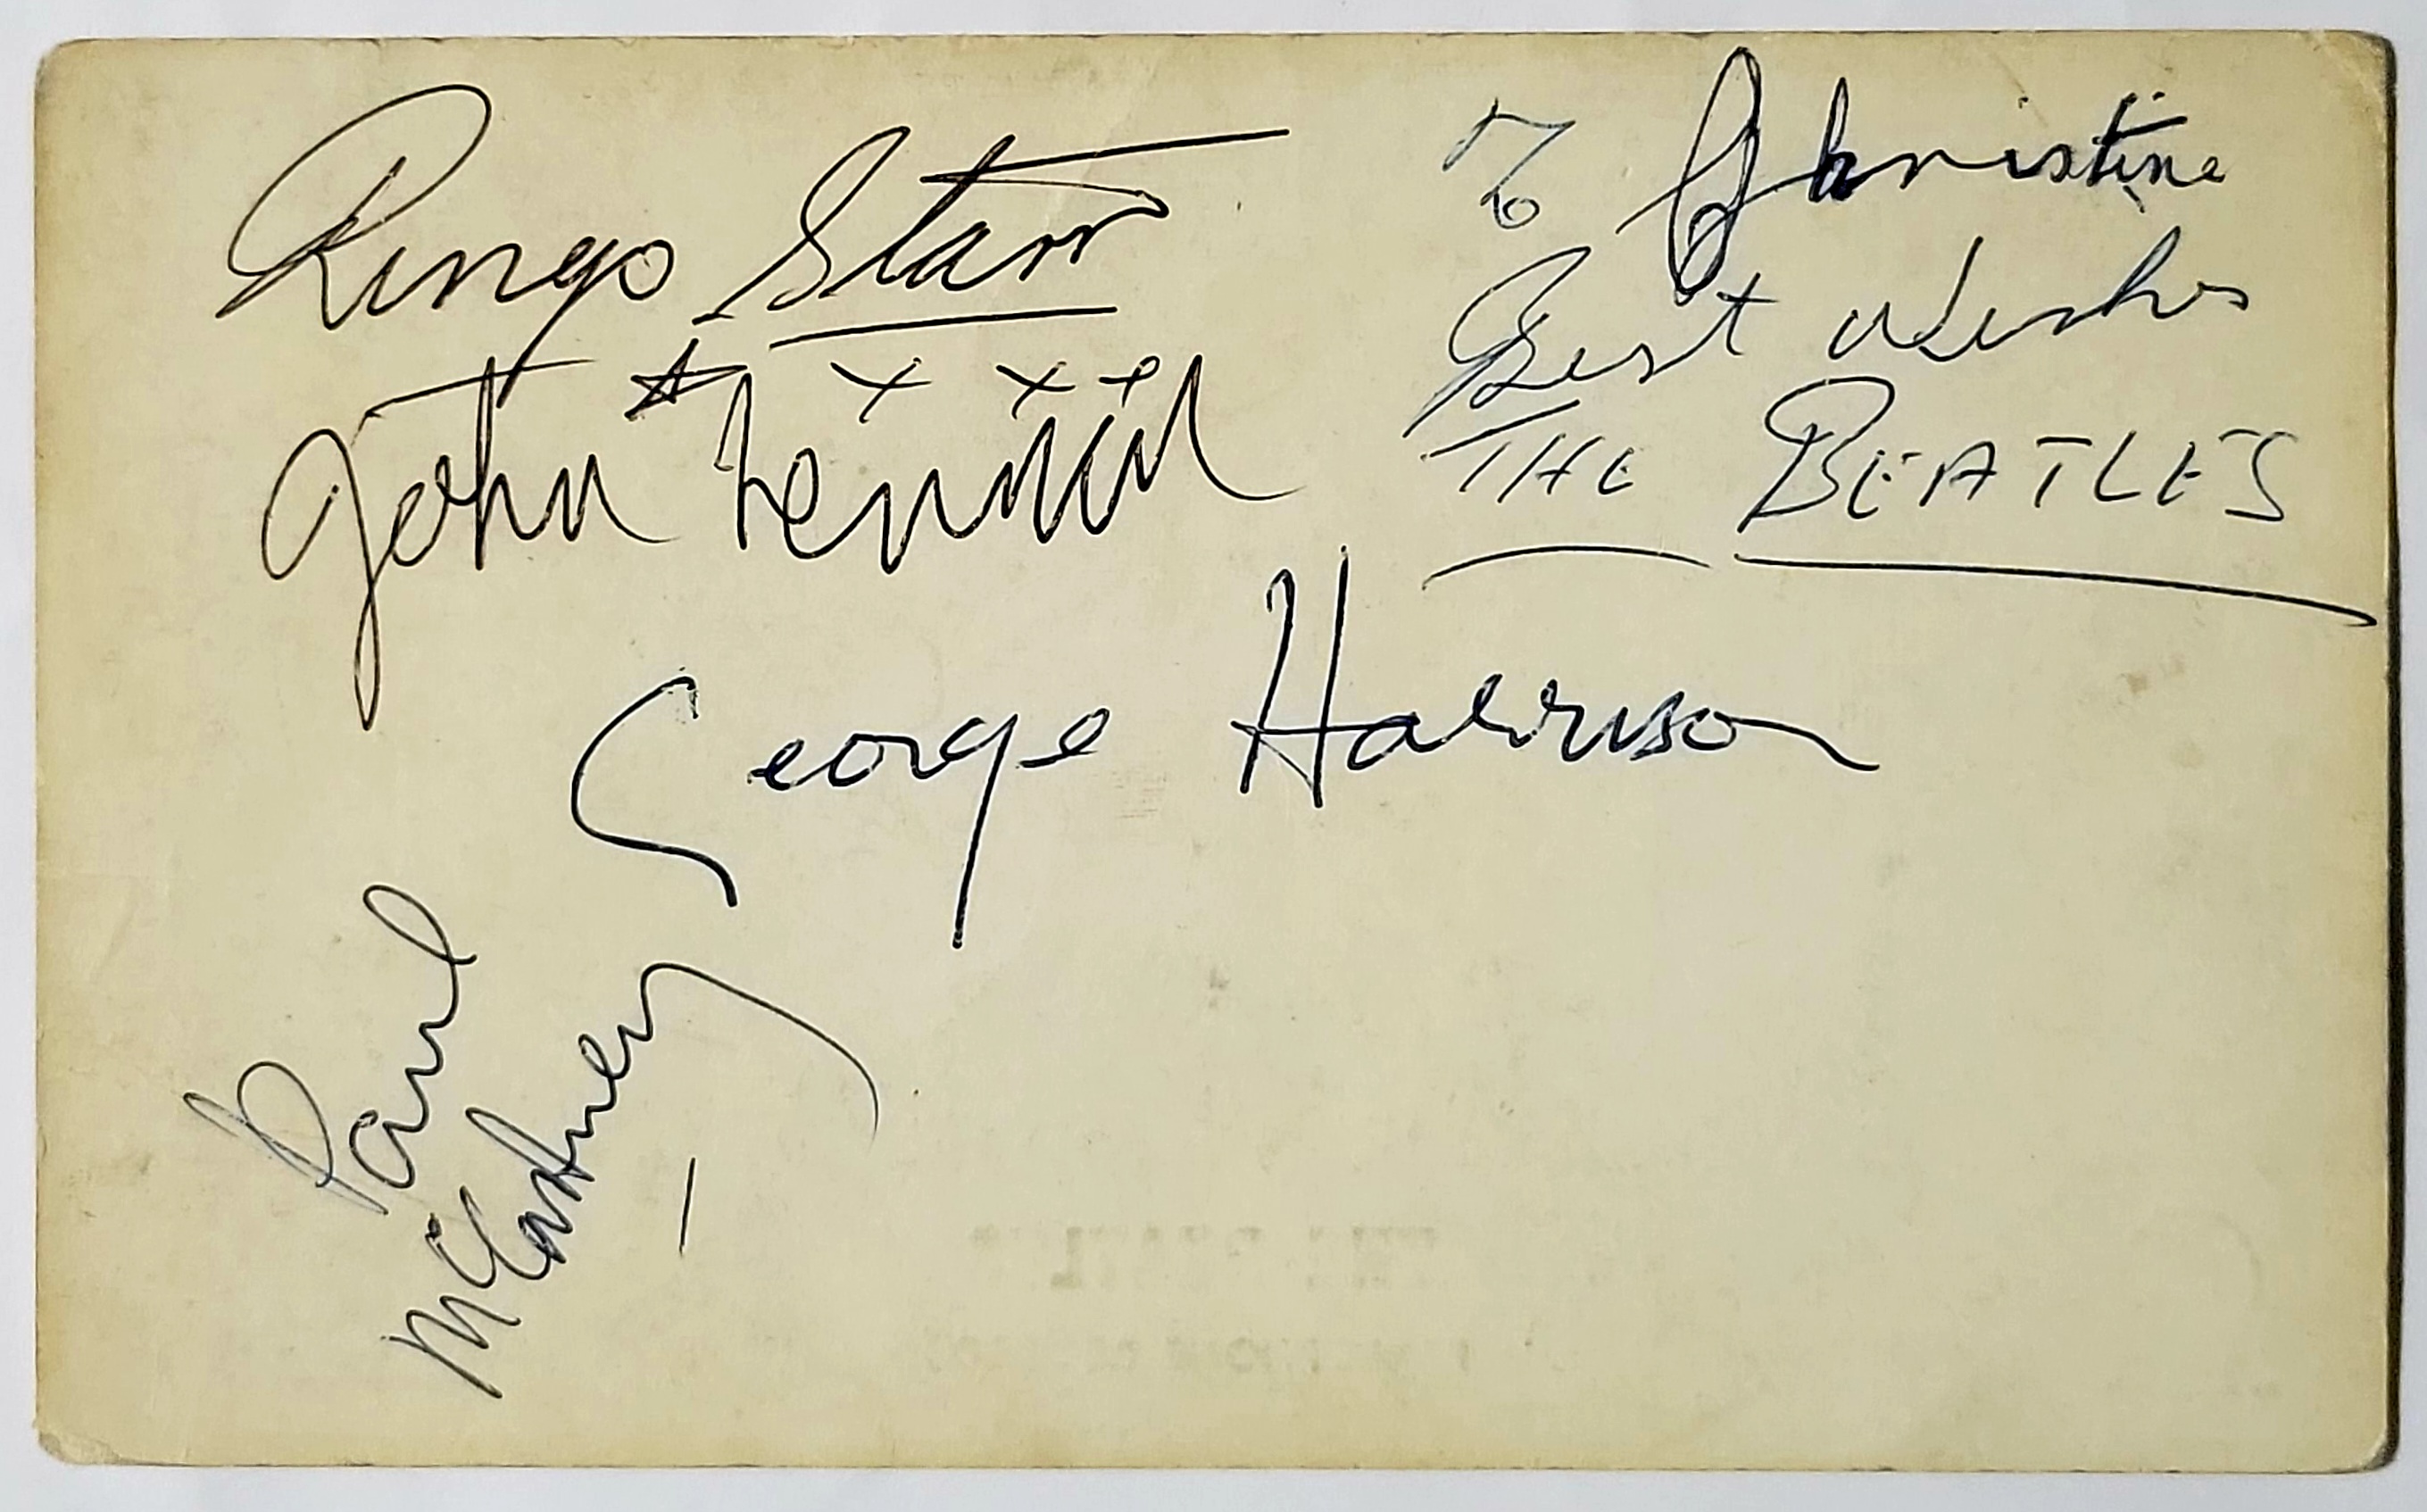 Ringo Starr
To Christine
Best Wishes
THE BEATLES
xxx
John Lennon
George Harrison
Paul
McCartney